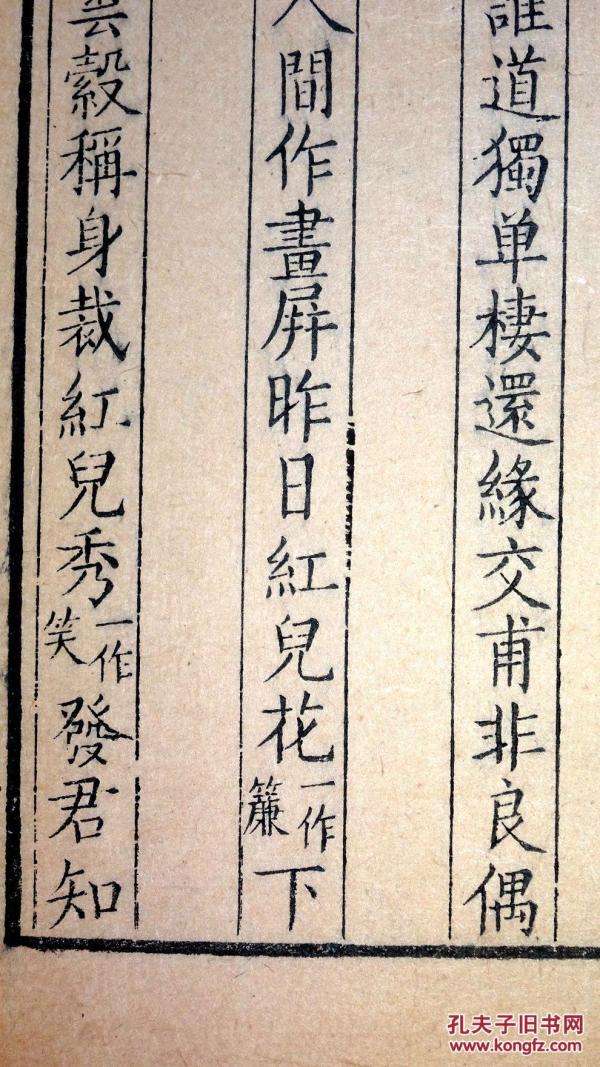 誰道獨单棲還緣交甫非良偶
人間作畫屏昨日紅兒花一作簾下
雲縠稱身裁紅兒秀一作笑發君知
孔夫子旧书网
www.kongfz.com